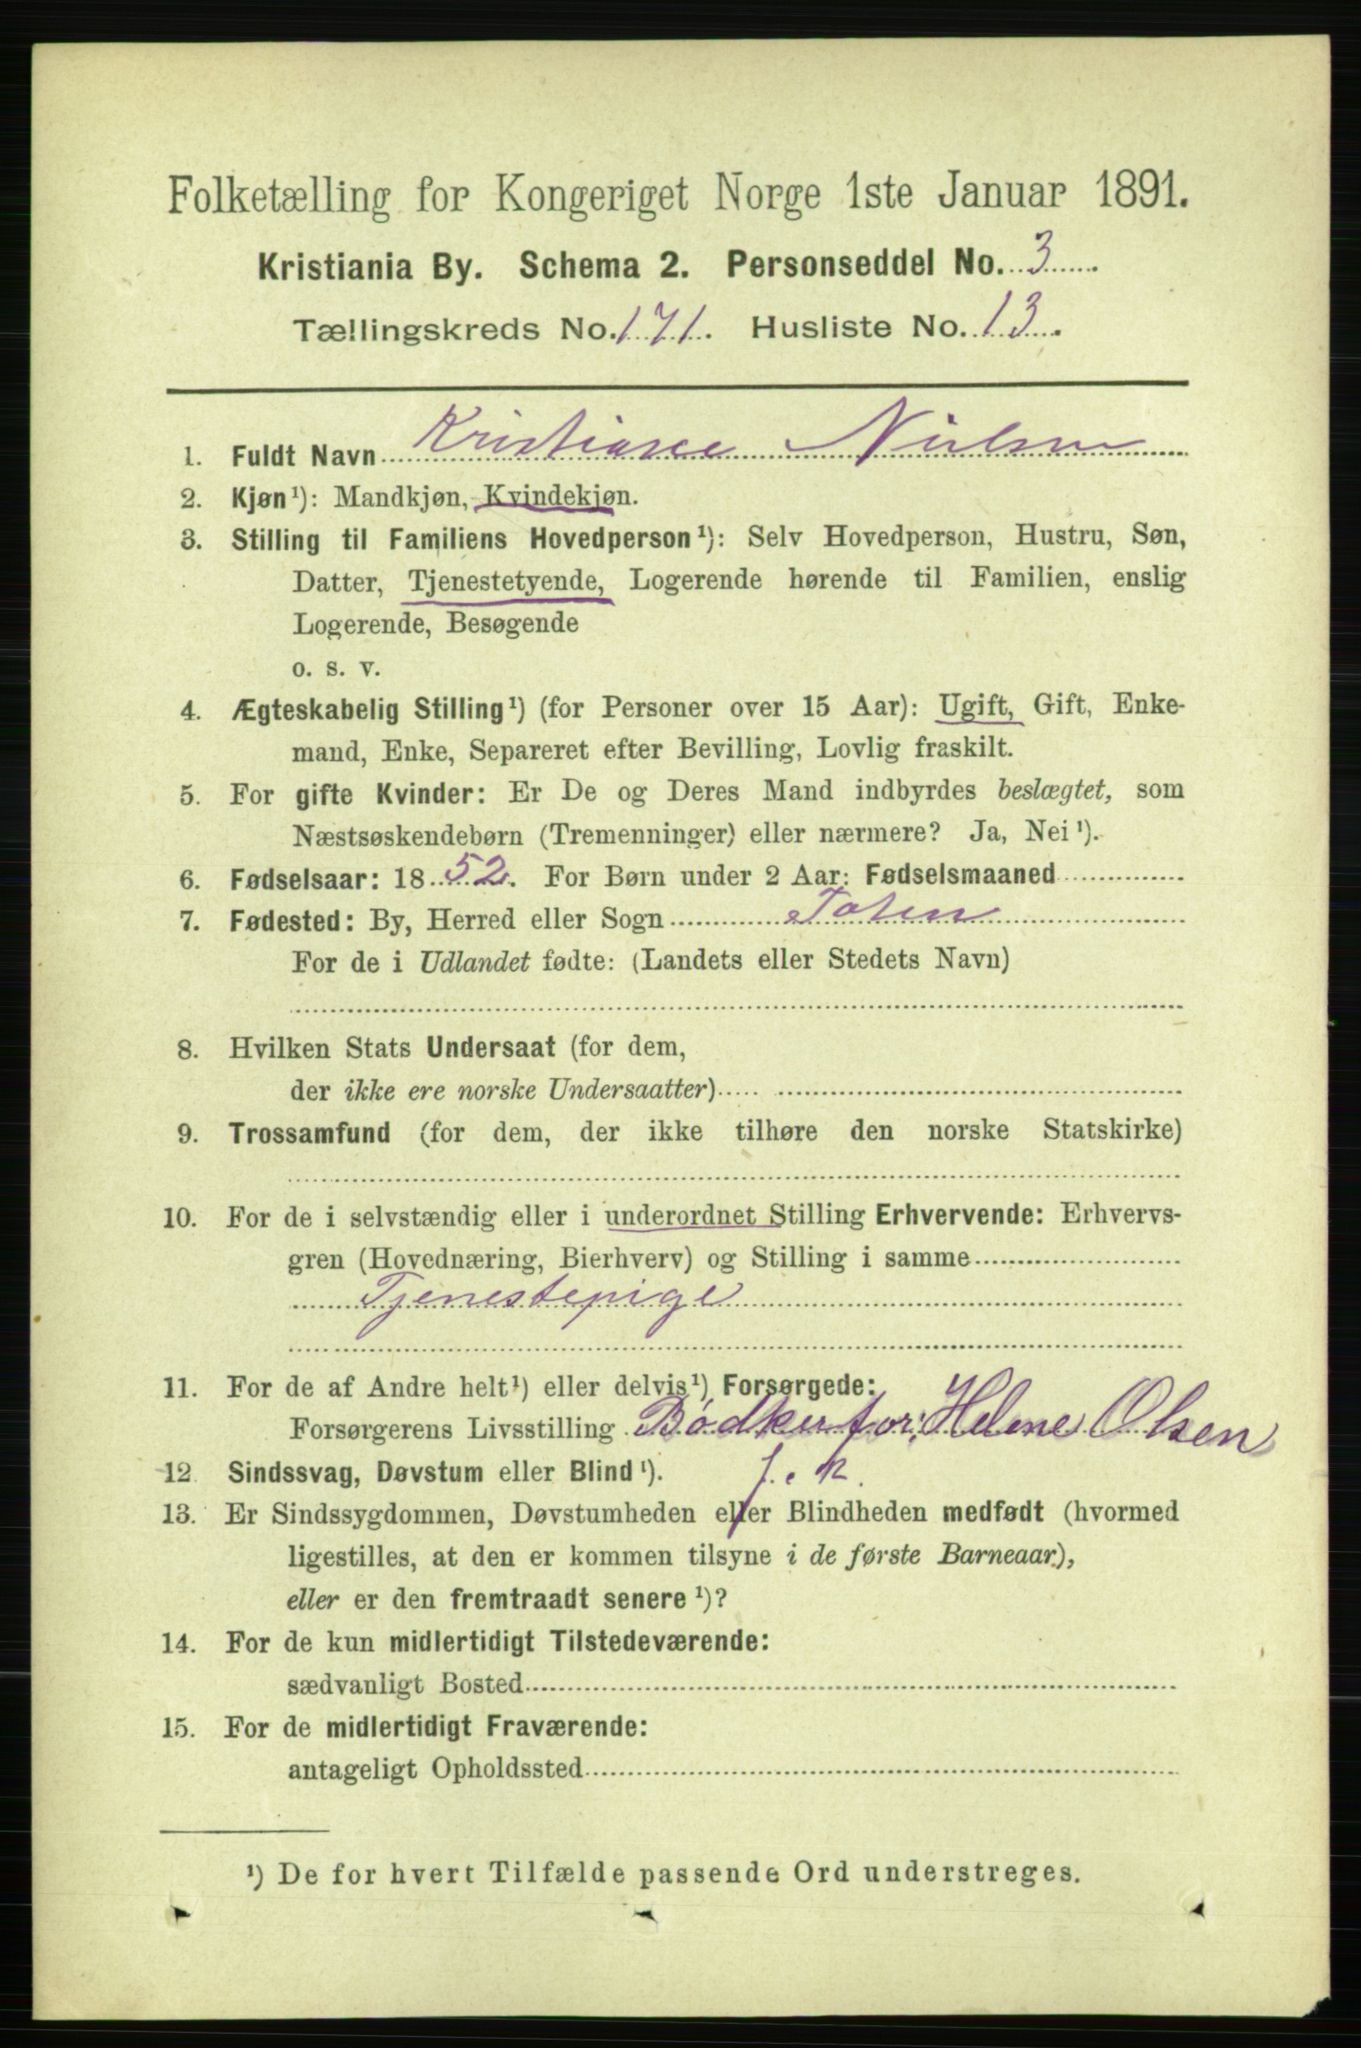 Folketælling for Kongeriget Norge 1ste Januar 1891.
Kristiania By. Schema 2. Personseddel No. 3
Tællingskreds No. 171. Husliste No. 13.
1. Fuldt Navn Kristiane Nielsen
2. Kjøn¹): Mandkjøn, Kvindekjøn.
3. Stilling til Familiens Hovedperson¹): Selv Hovedperson, Hustru, Søn,
Datter, Tjenestetyende, Logerende hørende til Familien, enslig
Logerende, Besøgende
o. s. v.
4. Ægteskabelig Stilling¹) (for Personer over 15 Aar): Ugift, Gift, Enke-
mand, Enke, Separeret efter Bevilling, Lovlig fraskilt.
5. For gifte Kvinder: Er De og Deres Mand indbyrdes beslægtet, som
Næstsøskendebørn (Tremenninger) eller nærmere? Ja, Nei¹).
6. Fødselsaar: 1852. For Børn under 2 Aar: Fødselsmaaned
7. Fødested: By, Herred eller Sogn Toten
For de i Udlandet fødte: (Landets eller Stedets Navn)
8. Hvilken Stats Undersaat (for dem,
der ikke ere norske Undersaatter)
9. Trossamfund (for dem, der ikke tilhøre den norske Statskirke)
10. For de i selvstændig eller i underordnet Stilling Erhvervende: Erhvervs-
gren (Hovednæring, Bierhverv) og Stilling i samme
Tjenestepige
11. For de af Andre helt¹) eller delvis¹) Forsørgede:
Forsørgerens Livsstilling Helene Olsen
12 Sindssvag, Døvstum eller Blind¹).
13. Er Sindssygdommen, Døvstumheden eller Blindheden medfødt (hvormed
ligestilles, at den er kommen tilsyne i de første Barneaar),
eller er den fremtraadt senere¹)?
14. For de kun midlertidigt Tilstedeværende:
sædvanligt Bosted
15. For de midlertidigt Fraværende:
antageligt Opholdssted
¹) De for hvert Tilfælde passende Ord understreges.